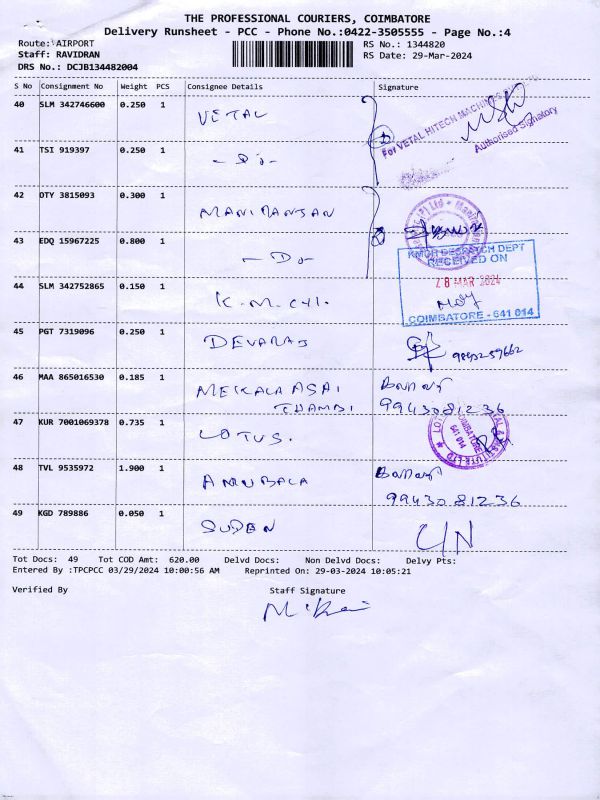 THE PROFESSIONAL COURIERS, COIMBATORE
Delivery Runsheet - PCC - Phone No.:0422-3505555 - Page No.:4
Route: AIRPORT
RS No.: 1344820
Staff: RAVIDRAN
RS Date: 29-Mar-2024
DRS No.: DCJB134482004
S No Consignment No Weight PCS Consignee Details Signature
40 SLM 342746600 0.250 1 VETAL
For VETAL HITECH MACHINES
Authorised Signatory
41 TSI 919397 0.250 1 - Do -
42 OTY 3815093 0.300 1 MANIMANSAN
43 EDQ 15967225 0.800 1 - Do -
KMCH DESPATCH DEPT
RECEIVED ON
28 MAR 2024
COIMBATORE - 641 014
44 SLM 342752865 0.150 1 K.M.CH.
45 PGT 7319096 0.250 1 DEVARAJ
46 MAA 865016530 0.185 1 MEKALA ASAI
THAMBI 9943081236
47 KUR 7001069378 0.735 1 LOTUS.
COIMBATORE
641 014
48 TVL 9535972 1.900 1 ANNUBALA
9943081236
49 KGD 789886 0.050 1 SUDEN
Tot Docs: 49 Tot COD Amt: 620.00 Delvd Docs: Non Delvd Docs: Delvy Pts:
Entered By :TPCPCC 03/29/2024 10:00:56 AM Reprinted On: 29-03-2024 10:05:21
Verified By Staff Signature